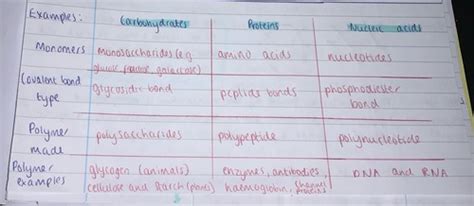 Examples: Carbohydrates Proteins Nucleic acids
Monomers monosaccharides (e.g amino acids nucleotides
glucose, fructose, galactose)
Covalent bond glycosidic bond peptide bonds phosphodiester
type bond
Polymer polysaccharides polypeptide polynucleotide
made
Polymer glycogen (animals) enzymes, antibodies, DNA and RNA
examples cellulose and starch (plants) haemoglobin, channel
proteins